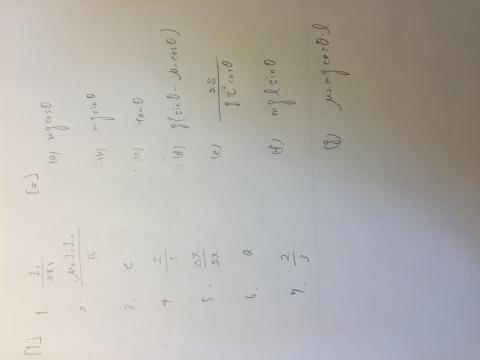 [1] 1 I₁/2πx₁
2. μ₀I₁I₂/πc
3. c
4 2/3
5. Δx/2x
6. a
7. 2/3
[2] (a) mg cosθ
(b) mg sinθ
(c) tanθ
(d) g(sinθ - μ₁cosθ)
(e) 2S/gt²cosθ
(f) mgl sinθ
(g) μ₂mg cosθ·l